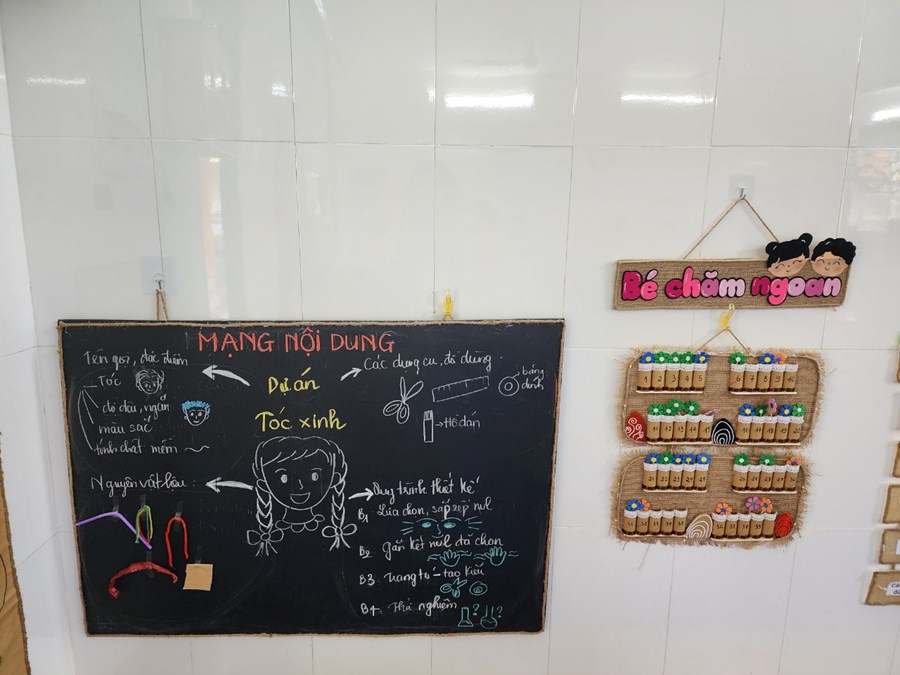 MẠNG NỘI DUNG
Tên gọi, đặc điểm
Tóc
độ dài, ngắn
màu sắc
tính chất mềm
Dự án
Tóc xinh
Các dụng cụ, đồ dùng
băng dính
Hồ dán
Nguyên vật liệu:
Quy trình thiết kế
B1 Lựa chọn, sắp xếp nvl
B2 Gắn kết nvl đã chọn
B3. Trang trí - tạo kiểu
B4. Thử nghiệm
? ?
Bé chăm ngoan